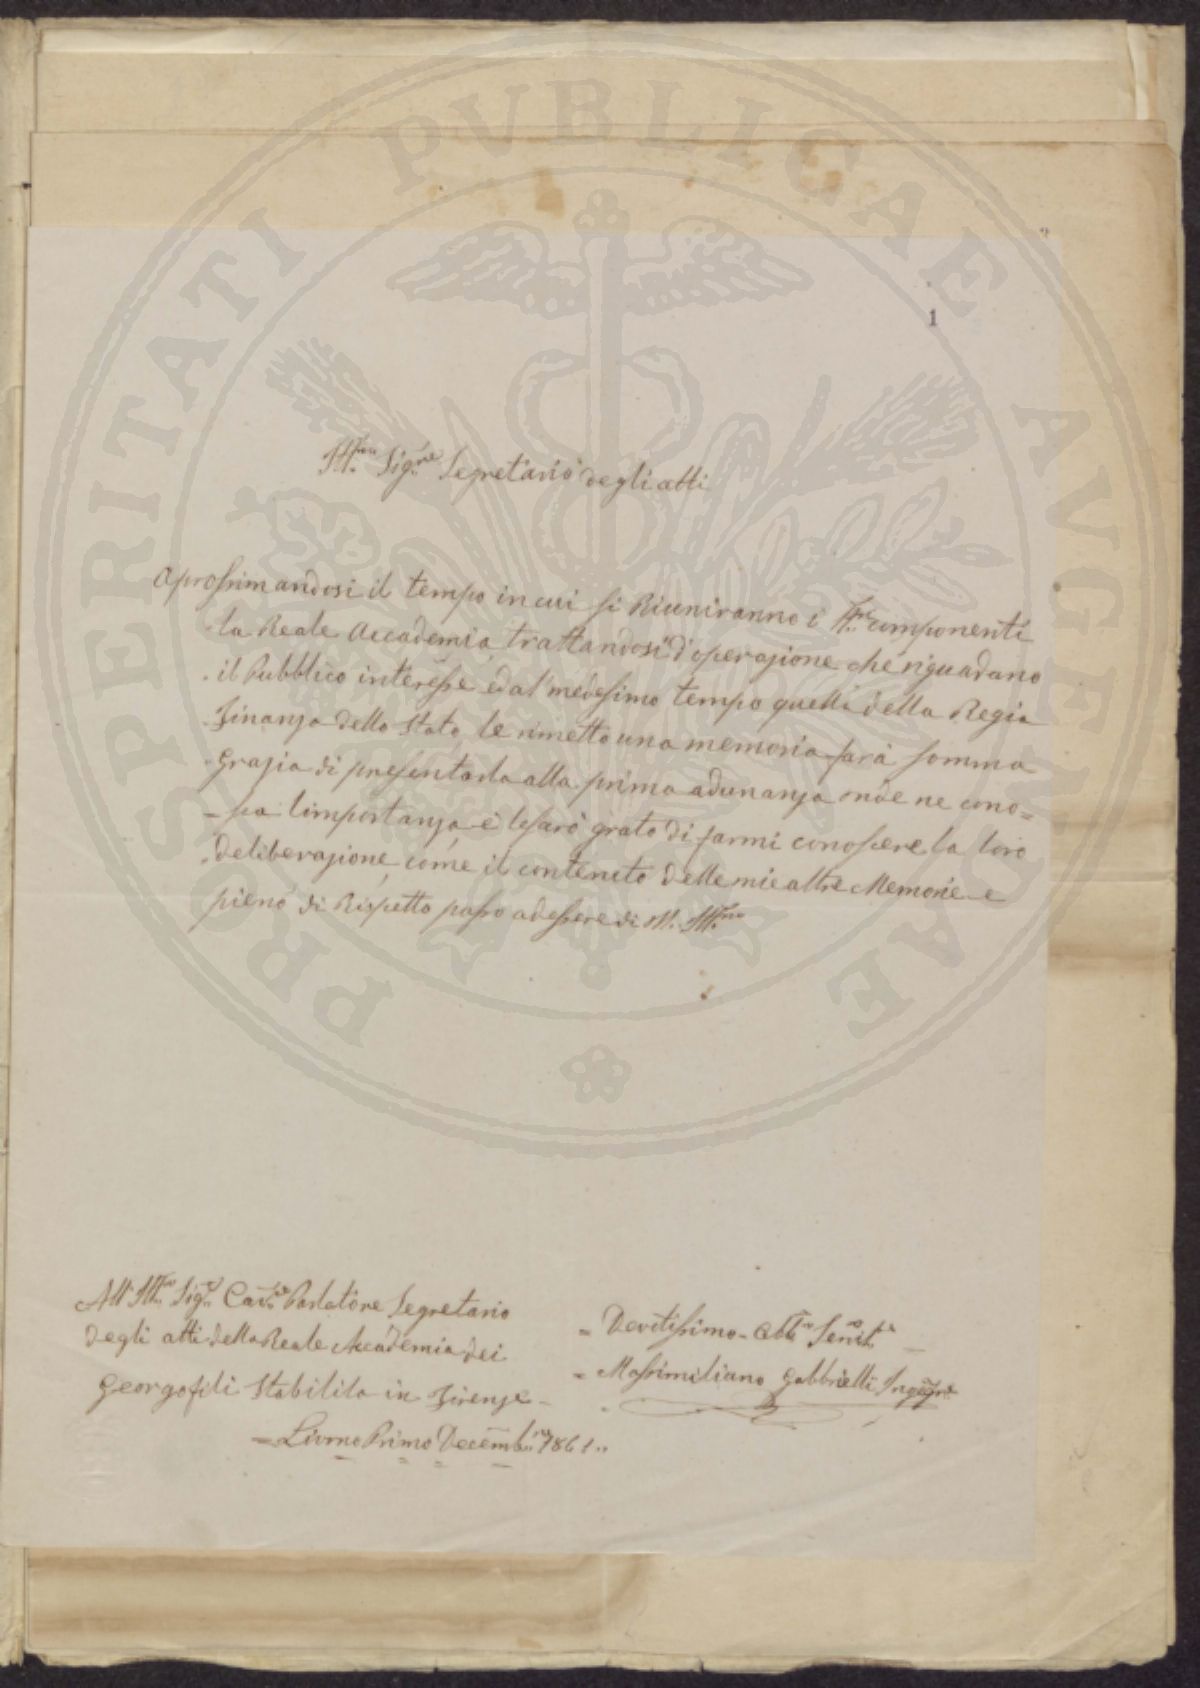 1
Ill.mo Sig.re Segretario degli atti
Aprossimandosi il tempo in cui si Riuniranno i SS.ri componenti
la Reale Accademia, trattandosi d'operazione che riguadano
il Pubblico interesse ed al medesimo tempo quelli della Regia
Finanza dello Stato, le rimetto una memoria farà somma
Grazia di presentarla alla prima adunanza onde ne cono=
=sca limportanza e le sarò grato di farmi conoscere la loro
deliberazione, come il contenuto delle mie altre Memorie e
pieno di Rispetto passo ad essere di V.S. Ill.ma
All Ill.mo Sig.re Cav.re Parlatore Segretario
degli atti della Reale Accademia dei
Georgofili Stabilita in Firenze
= Livorno Primo Decemb.re 1861..
= Devotissimo Obb.mo Servit.re
= Massimiliano Gabbrielli Ingeg.re
PROSPERITATI PVBLICAE AVGENDAE